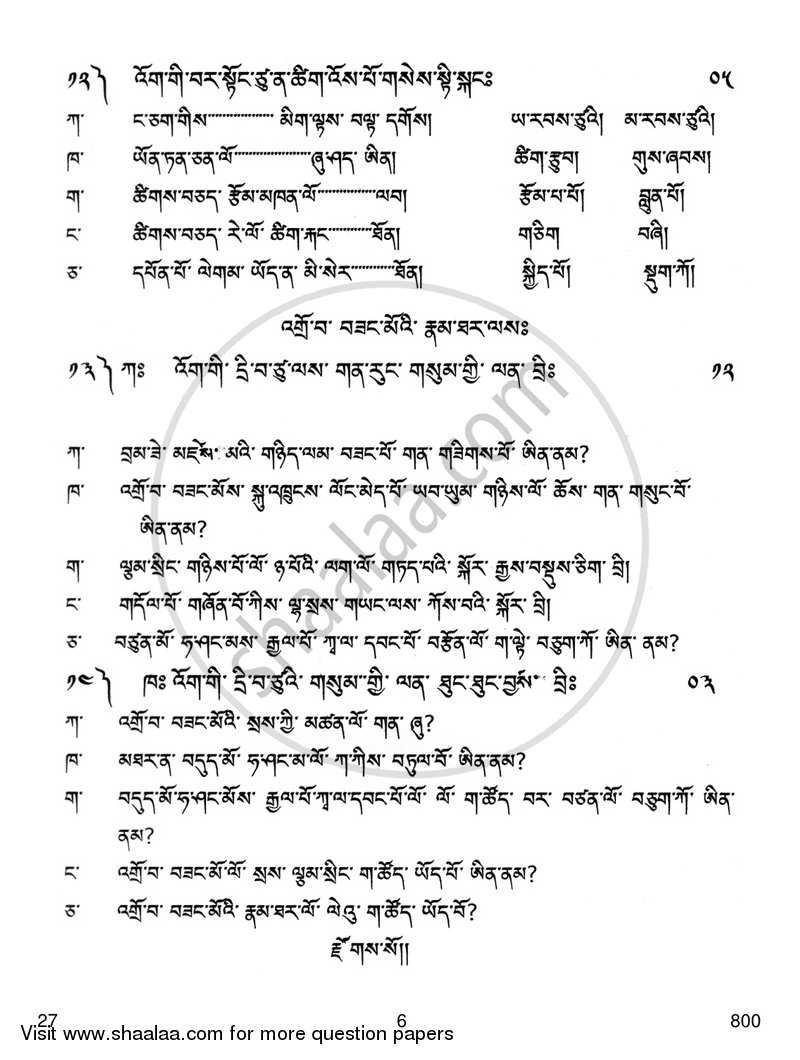 ༡༢༽ འོག་གི་བར་སྟོང་ཙུན་ཚིག་འོས་པོ་གསེས་སྟི་སྐང༔ ༠༥
ཀ་ ང་ཅག་གིས་................ མིག་ལྟས་ བལྟ་ དགོས། ཡ་རབས་ཙུའི། མ་རབས་ཙུའི།
ཁ་ ཡོན་ཏན་ཅན་ལོ་..................ཞུ་ཤད་ ཨིན། ཚིག་རྩུབ། གུས་ཞབས།
ག་ ཚིགས་བཅད་ རྩོམ་མཁན་ལོ་..............ལབ། རྩོམ་པ་པོ། བླུན་པོ།
ང་ ཚིགས་བཅད་ རེ་ལོ་ ཚིག་རྐང་..........ཐོན། གཅིག བཞི།
ཅ་ དཔོན་པོ་ ལེགམ་ ཡོད་ན་ མི་སེར་..........ཐོན། སྐྱིད་པོ། སྡུག་ཀོ།
འགྲོ་བ་ བཟང་མོའི་ རྣམ་ཐར་ལས༔
༡༣༽ ཀ༔ འོག་གི་ དྲི་བ་ཙུ་ལས་ གན་རུང་ གསུམ་གྱི་ ལན་ བྲི༔ ༡༢
ཀ་ བྲམ་ཟེ་ མཛེས་ མའི་ གཉིད་ལམ་ བཟང་པོ་ གན་ གཟིགས་པོ་ ཨིན་ནམ?
ཁ་ འགྲོ་བ་ བཟང་མོས་ སྐུ་འཁྲུངས་ ལོང་མེད་པོ་ ཡབ་ཡུམ་ གཉིས་ལོ་ ཆོས་ གན་ གསུང་བོ་
ཨིན་ནམ?
ག་ ལྕམ་སྲིང་ གཉིས་པོ་ལོ་ ཉ་པོའི་ ལག་ལོ་ གཏད་པའི་ སྐོར་ རྒྱས་བསྡུས་ཅིག་ བྲི།
ང་ གདོལ་པོ་ གཞོན་བོ་ཀིས་ ལྷ་སྲས་ གཡང་ལས་ ཀོས་བའི་ སྐོར་ བྲི།
ཅ་ བཙུན་མོ་ ཧ་ཤང་མས་ རྒྱལ་པོ་ ཀཱ་ལ་ དབང་པོ་ བརྩོན་ལོ་ ག་ལྟེ་ བཅུག་ཀོ་ ཨིན་ ནམ?
༡༤༽ ཁ༔ འོག་གི་ དྲི་བ་ཙུའི་ གསུམ་གྱི་ ལན་ ཐུང་ཐུང་བྱས་ བྲི༔ ༠༣
ཀ་ འགྲོ་བ་ བཟང་མོའི་ སྲས་ཀྱི་ མཚན་ལོ་ གན་ ཞུ?
ཁ་ མཐར་ན་ བདུད་མོ་ ཧ་ཤང་མ་ལོ་ ཀ་ཀིས་ བཏུལ་བོ་ ཨིན་ནམ?
ག་ བདུད་མོ་ཧ་ཤང་མོས་ རྒྱལ་པོ་ཀཱ་ལ་དབང་པོ་ལོ་ ལོ་ ག་ཚོད་ བར་ བཙན་ལོ་ བཅུག་ཀོ་ ཨིན་
ནམ?
ང་ འགྲོ་བ་ བཟང་མོ་ལོ་ སྲས་ ལྕམ་སྲིང་ ག་ཚོད་ ཡོད་པོ་ ཨིན་ནམ?
ཅ་ འགྲོ་བ་ བཟང་མོའི་ རྣམ་ཐར་ལོ་ ལེའུ་ ག་ཚོད་ ཡོད་བོ?
རྫོགས་སོ།།
27 6 800
Visit www.shaalaa.com for more question papers
shaalaa.com